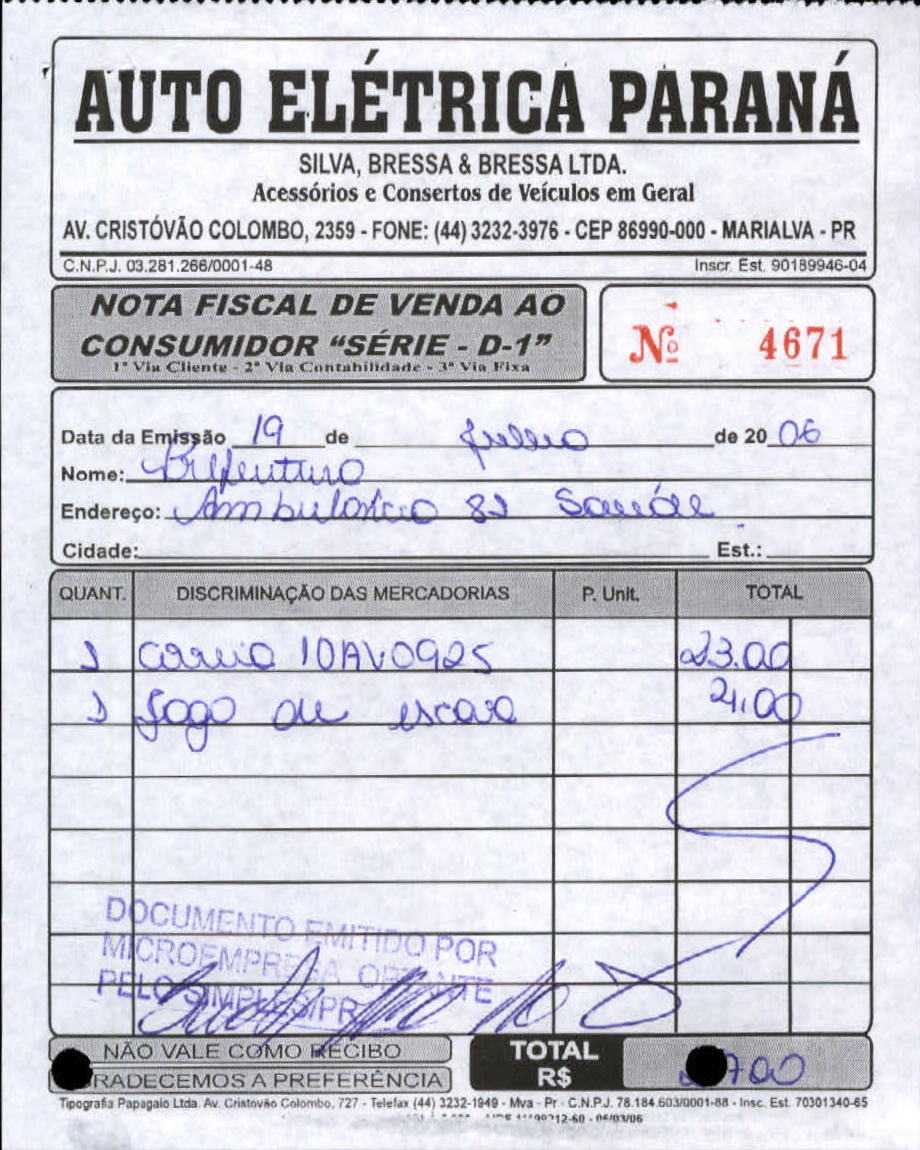 AUTO ELÉTRICA PARANÁ
SILVA, BRESSA & BRESSA LTDA.
Acessórios e Consertos de Veículos em Geral
AV. CRISTÓVÃO COLOMBO, 2359 - FONE: (44) 3232-3976 - CEP 86990-000 - MARIALVA - PR
C.N.P.J. 03.281.266/0001-48 Inscr. Est. 90189946-04
NOTA FISCAL DE VENDA AO
CONSUMIDOR “SÉRIE - D-1”
1ª Via Cliente - 2ª Via Contabilidade - 3ª Via Fixa
Nº 4671
Data da Emissão 19 de de 20 06
Nome: Prefeitura
Endereço: Ambulância 82 Saúde
Cidade: Est.:
QUANT. DISCRIMINAÇÃO DAS MERCADORIAS P. Unit. TOTAL
1 Correia 10AV0925 23.00
1 Jogo de escova 24,00
DOCUMENTO EMITIDO POR
MICROEMPRESA OPTANTE
PELO SIMPLES/PR
NÃO VALE COMO RECIBO
RADECEMOS A PREFERÊNCIA
TOTAL
R$ 7.00
Tipografia Papagaio Ltda. Av. Cristovão Colombo, 727 - Telefax (44) 3232-1949 - Mva - Pr - C.N.P.J. 78.184.603/0001-88 - Insc. Est. 70301340-65
06/03/06